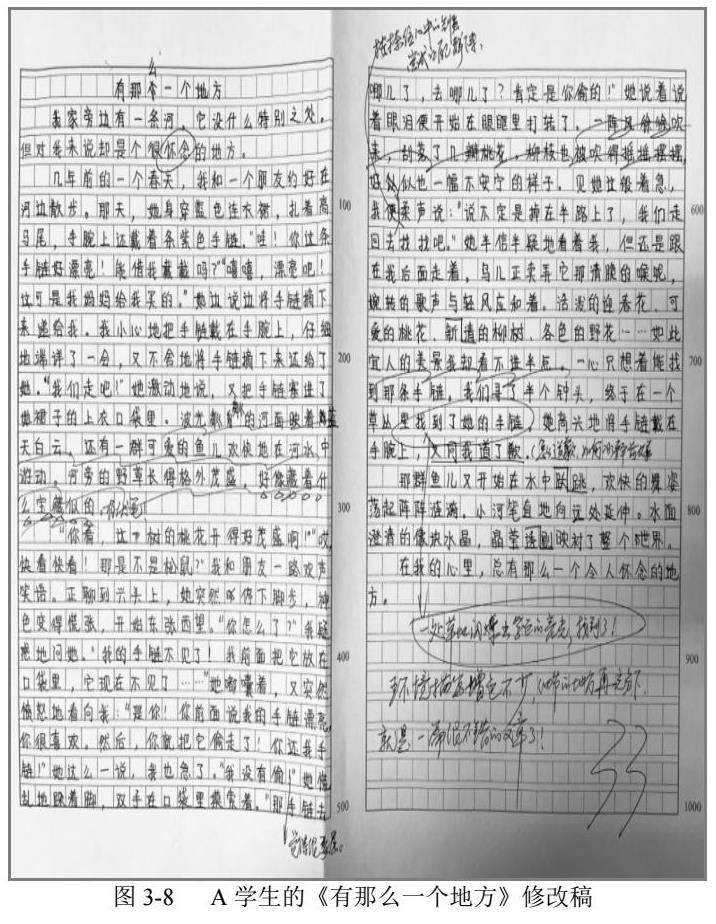 么
有那个一个地方
我家旁边有一条河。它没什么特别之处。
但对我来说却是个很怀念的地方。
几年前的一个春天,我和一个朋友约好在
河边散步。那天,她身穿蓝色连衣裙,扎着高
马尾,手腕上还戴着条紫色手链。“哇!你这条
手链好漂亮!能借我戴戴吗?”“嘻嘻,漂亮吧!
这可是我妈妈给我买的。”她边说边将手链摘下
来递给我。我小心地把手链戴在手腕上,仔细
地端详了一会,又不舍地将手链摘下来还给了
她。“我们走吧!”她激动地说,又把手链塞进了
她裙子的上衣口袋里。波光粼粼的河面映着蓝
天白云,还有一群可爱的鱼儿欢快地在河水中
游动。河旁的野草长得格外茂盛。好像藏着什
么宝藏似的。
“你看,这片树的桃花开得好茂盛啊!”“哎
快看快看!那是不是松鼠?”我和朋友一路欢声
笑语。正聊到兴头上,她突然停下脚步,神
色变得慌张,开始左张西望。“你怎么了?”我疑
惑地问她。“我的手链不见了!我前面把它放在
口袋里,它现在不见了……”她嘟囔着,又突然
愤怒地看向我:“是你!你前面说我的手链漂亮,
你很喜欢。然后,你就把它偷走了!你还我手
链!”她这么一说,我也急了。“我没有偷!”她慌
乱地跺着脚,双手在口袋里摸索着。“那手链去
100
200
300
400
500
哪儿了,去哪儿了?肯定是你偷的!”她说着说
着眼泪便开始在眼眶里打转了。一阵风徐徐吹
来,刮落了几瓣桃花。柳枝也被吹得摇摇摆摆,
好似似也一幅不安宁的样子。见她这般着急,
我便柔声说:“说不定是掉在半路上了,我们走
回去找找吧。”她半信半疑地看着我,但还是跟
在我后面走着。鸟儿正卖弄它那清脆的喉咙,
婉转的歌声与轻风应和着。活泼的迎春花、可
爱的桃花、新清的柳树、各色的野花……如此
宜人的美景我却看不进半点。一心只想着能找
到那条手链。我们寻了半个钟头,终于在一个
草丛里找到了她的手链。她高兴地将手链戴在
手腕上,又向我道了歉。
那群鱼儿又开始在水中跃跳,欢快的舞姿
荡起阵阵涟漪。小河笔直地向远处延伸。水面
澄清的像块水晶,晶莹透剔映衬了整个世界。
在我的心里,总有那么一个令人怀念的地
方。
600
700
800
900
1000
环境描写增色不少,
就是一篇很不错的文章了!
33
图 3-8 A 学生的《有那么一个地方》修改稿